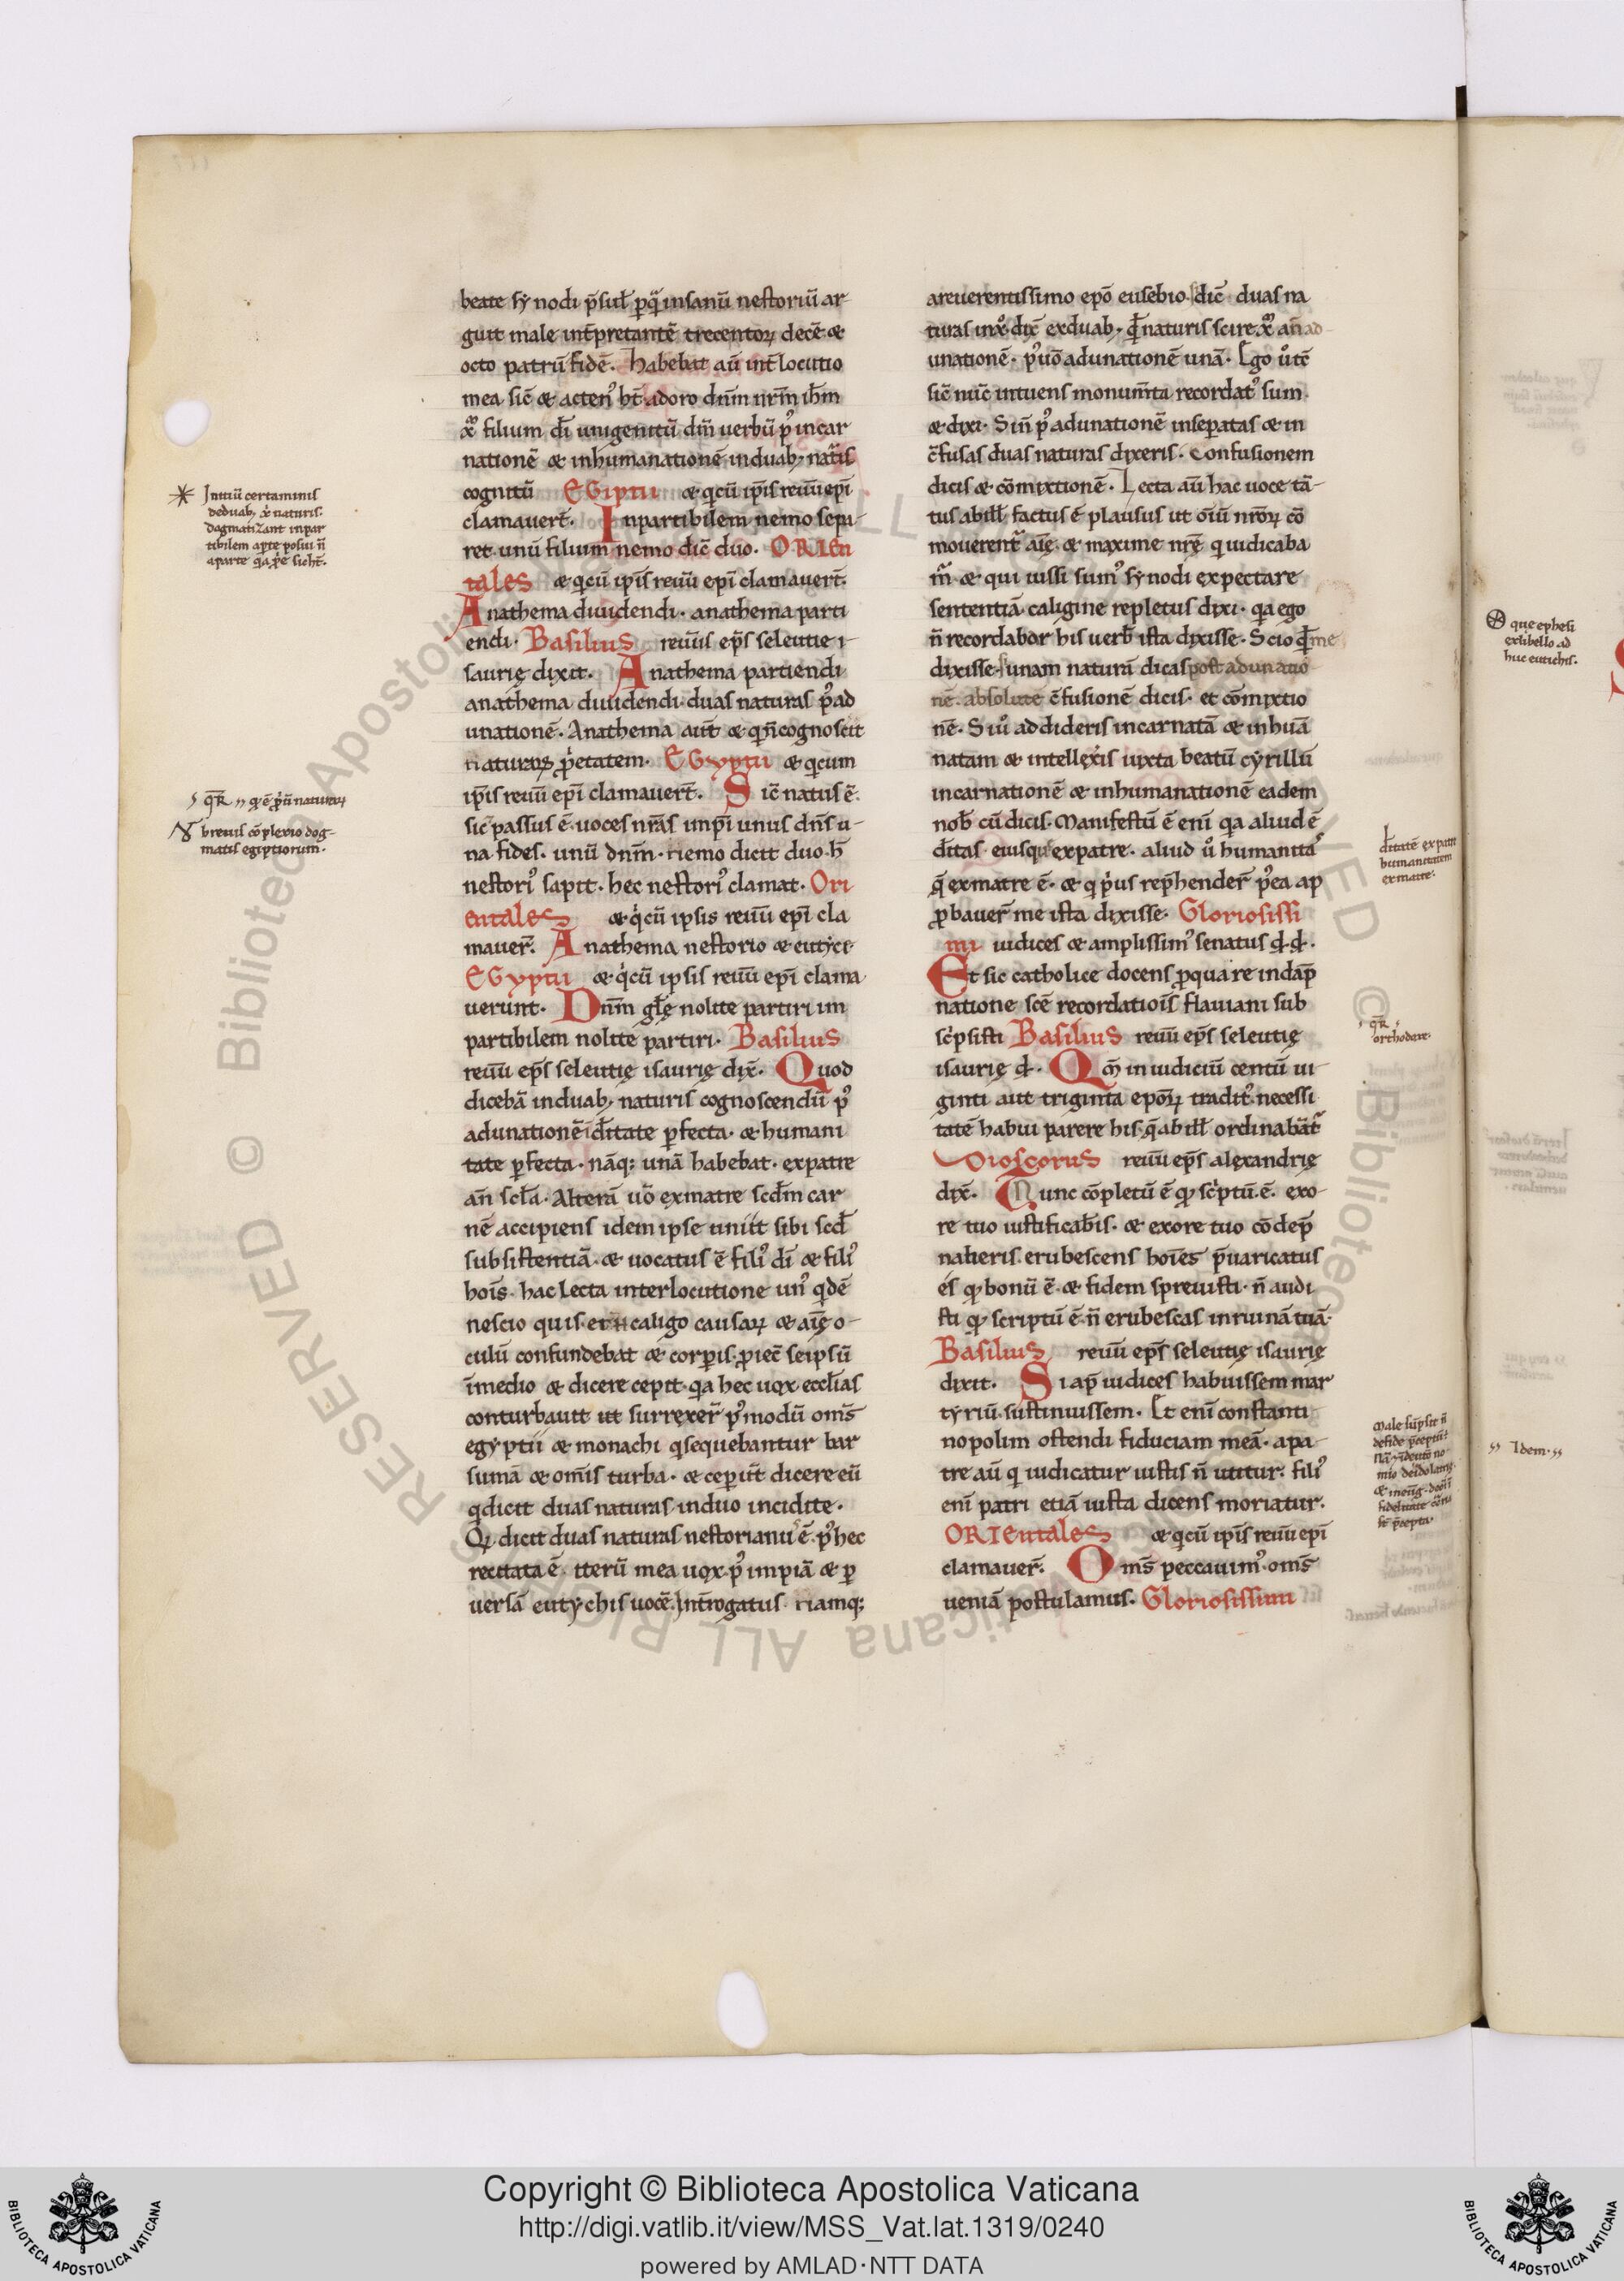 beate synodi p̄sul̄ p̱ q̄ insanū nestoriū ar
guit male int̄pretantē trecentoꝝ decē &
octo patrū fidē. habebat aū int̄locutio
mea sic̄ & acten᷒ ht̄ adoro dn̄m nr̄m ih̄m
xp̄m filium dī unigenitū dm̄ uerbū p᷒ incar
nationē & inhumanationē induab; natu̅is
cognitū EGiptii & qi cū ip̄is reuū ep̄i
clamauer̄t. Inpartibilem nemo sepa
ret unū filium nemo dic̄ duo. ORIEn
tales & qi cū ip̄is reuū ep̄i clamauer̄t.
Anathema diuidendi. anathema parti
endi. Basilius reuū̄s ep̄s seleutie i
saurię dixit. Anathema partiendi
anathema diuidendi. duas naturas p᷒ ad
unationē. Anathema aut̄ & qi n̄ cognoscit
naturaꝝ p̱p̱etatem. EGyptii & qi cum
ip̄is reuū ep̄i clamauer̄t. Sic̄ natus ē.
sic̄ passus ē. uoces nr̄as imp̄i unus dn̄s u
na fides. unū dn̄m. nemo dicit duo. h̄
nestori᷒ sapit. hec nestori᷒ clamat. Ori
entales & qi cū ipsis reuū ep̄i cla
mauer̄. Anathema nestorio & eutyci
EGyptii & qi cū ipsis reuū ep̄i clama
uerunt. Dn̄m gl̄ę nolite partiri im
partibilem nolite partiri. Basilius
reuū ep̄s seleutię isaurię dix̄. Quod
dicebā induab; naturis cognoscendū p᷒
adunationē i dītate p̱fecta. & humani
tate p̱fecta. nāq; unā habebat. expatre
an̄ scl̄a. Alterā uō exmatre scd̄m car
nē accipiens idem ipse uniit sibi scd̄
subsistentiā. & uocatus ē fili᷒ dī & fili᷒
hoīs. hac lecta interlocutione un᷒ qdē
nescio quis caligo causaꝝ & aīę o
culū confundebat & corp̱is. p̱iec̄ seipsū
īmedio & dicere cepit. qa hec uox eccl̄ias
conturbauit ut surrexer̄ p᷒ modū om̄s
egyptii & monachi q̄ sequebantur bar
sumā & om̄is turba. & ceper̄t dicere eū
q dicit duas naturas induo incidite.
Qi dicit duas naturas nestorianu᷒ ē. p᷒ hec
recitata ē. iterū mea uox. p᷒ impiā & p̱
uersā eutychis uocē. Int̄rogatus namq;
areuerentissimo ep̄o eusebio. dic̄ duas na
turas inx᷒. dix̄ exduab; qd̄ naturis scire xp̄m an̄ ad
unationē. p᷒ uō adunationē unā. Ego u᷒ tē
sic̄ nūc intuens monum̄ta recordat᷒ sum.
& dixi. Sin̄ p᷒ adunationē insep̱atas & in
c̄fusas duas naturas dixeris. Confusionem
dicis & cōmixtionē. Lecta aū hac uoce tā
tus abill̄ factus ē plausus ut oīū nr̄oꝝ cō
mouerent᷒ aīę. & maxime nr̄ę q iudicaba
m᷒ & qui iussi sum᷒ synodi expectare
sententiā. caligine repletus dixi. qa ego
n̄ recordabor his uerb̄ ista dixisse. Scio qd̄ me
dixisse. si unam naturā dicas post adunatio
nē. absolute c̄fusionē dicis. et cōmixtio
nē. Siu᷒ addideris incarnatā & inhuā
natam & intellexi̅s iuxta beatū cyrillū
incarnationē & inhumanationē eadem
nob̄ cū dicis. Manifestū ē enī qa aliud ē
dītas eiusque expatre. aliud u᷒ humanitas
q̄ exmatre ē. & q p̱us rep̄hender̄ p᷒ea ap
p̱bauer̄ me ista dixisse. Gloriosissi
mi iudices & amplissim᷒ senatus d̄.d̄.
Et sic catholice docens p̱quare in dāp̄
natione scē recordatiōis flauiani sub
sc̄psisti Basilius reuū ep̄s seleutię
isaurię d̄. Qm̄ in iudiciū centū ui
ginti aut triginta ep̄oꝝ tradit᷒ necessi
tatē habui parere his q̄ abill̄ ordinabāt᷒
Dioscorus reuū ep̄s alexandrię
dix̄. Nunc cōpletū ē qd sc̄ptū ē. exo
re tuo iustificab̄is. & exore tuo cōdep̄
naberis. erubescens hoīes p̄uaricatus
és qd bonū ē & fidem spreuisti. n̄ audi
sti qd scriptū ē. n̄ erubescas in ruinā tuā.
Basilius reuū ep̄s seleutię isaurię
dixit. Si ap̄ iudices habuissem mar
tyriū. sustinuissem. Et enī constanti
nopolim ostendi fiduciam meā. apa
tre aū q iudicatur iustis n̄ utitur. fili᷒
enī patri etiā iusta dicens moriatur.
ORIEntales & qi cū ip̄is reuū ep̄i
clamauer̄. Om̄s peccauim᷒ om̄s
ueniā postulamus. Gloriosissimi
Initiū certaminis
deduab; x᷒ naturis.
dogmatizant inpar
tibilem aperte posui n̄
aparte
breuis cōplexio dog
matis egiptiorum.
dītatē ex patre
humanitatem
exmatre.
orthodoxe.
Male sūpsit n̄
defide p̄ceptū:
que ephesi
exlibello ad
huc eutichis.
Idem.
Copyright © Biblioteca Apostolica Vaticana
http://digi.vatlib.it/view/MSS_Vat.lat.1319/0240
powered by AMLAD·NTT DATA
BIBLIOTECA APOSTOLICA VATICANA
BIBLIOTECA APOSTOLICA VATICANA